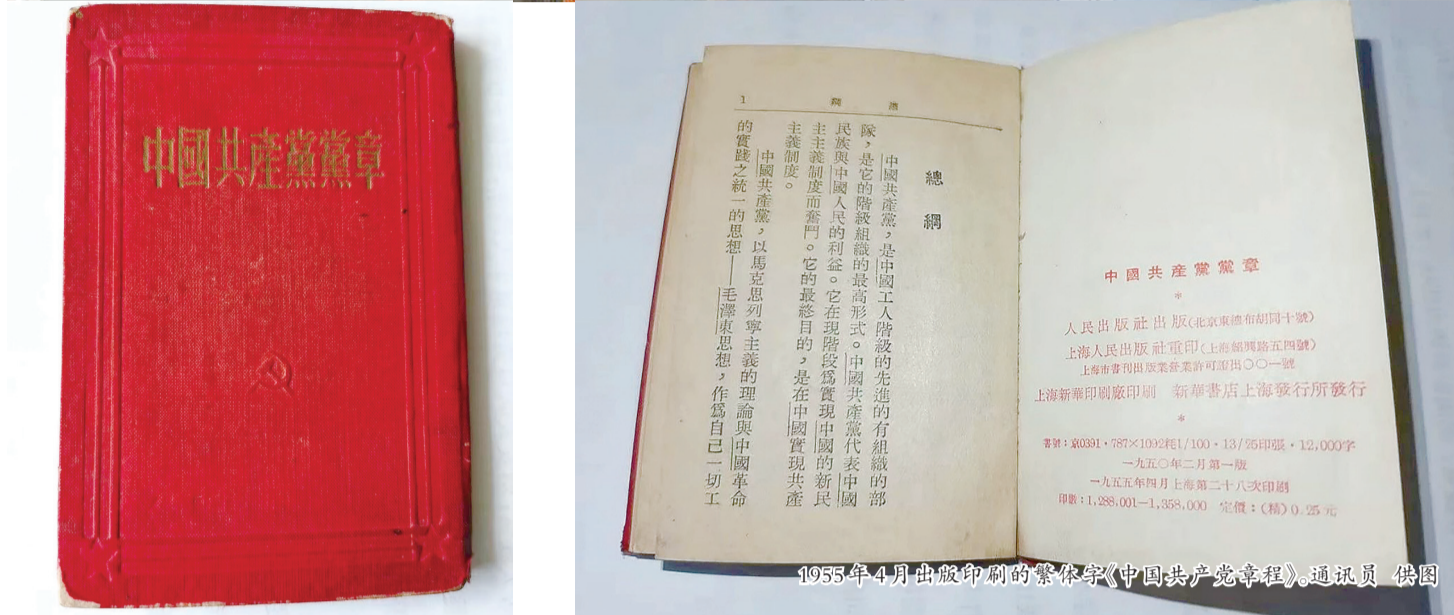 中國共產黨黨章
總綱
1
總
綱
中國共產黨，是中國工人階級的先進的有組織的部
隊，是它的階級組織的最高形式。中國共產黨代表中國
民族與中國人民的利益。它在現階段爲實現中國的新民
主主義制度而奮鬥。它的最終目的，是在中國實現共產
主義制度。
中國共產黨，以馬克思列寧主義的理論與中國革命
的實踐之統一的思想——毛澤東思想，作爲自己一切工
中國共產黨黨章
*
人民出版社出版(北京東總布胡同十號)
上海人民出版社重印(上海紹興路五四號)
上海市書刊出版業營業許可證出〇〇一號
上海新華印刷廠印刷 新華書店上海發行所發行
*
書號：京0391·787×1092耗1/100·13/25印張·12,000字
一九五〇年二月第一版
一九五五年四月上海第二十八次印刷
印數：1,288,001—1,358,000 定價：(精)0.25元
1955年4月出版印刷的繁体字《中国共产党章程》。通讯员 供图